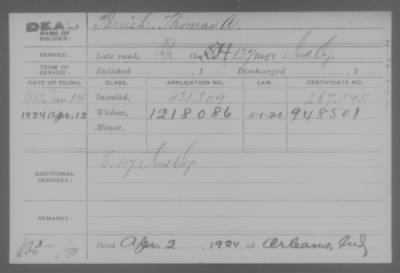 DEAD
NAME OF SOLDIER:
Parrish, Thomas A.
SERVICE:
Late rank, Co. 127 Reg't Ind. Cav.
TERM OF SERVICE:
Enlisted , 1 Discharged , 1
DATE OF FILING. CLASS. APPLICATION NO. LAW. CERTIFICATE NO.
Invalid, 438309 267545
1924 Apr. 12 Widow, 1218086 5-1-20 948501
Minor,
ADDITIONAL SERVICES:
C. 117 Ind. Inf.
REMARKS:
Died Apr. 2, 1924, at Orleans, Ind.